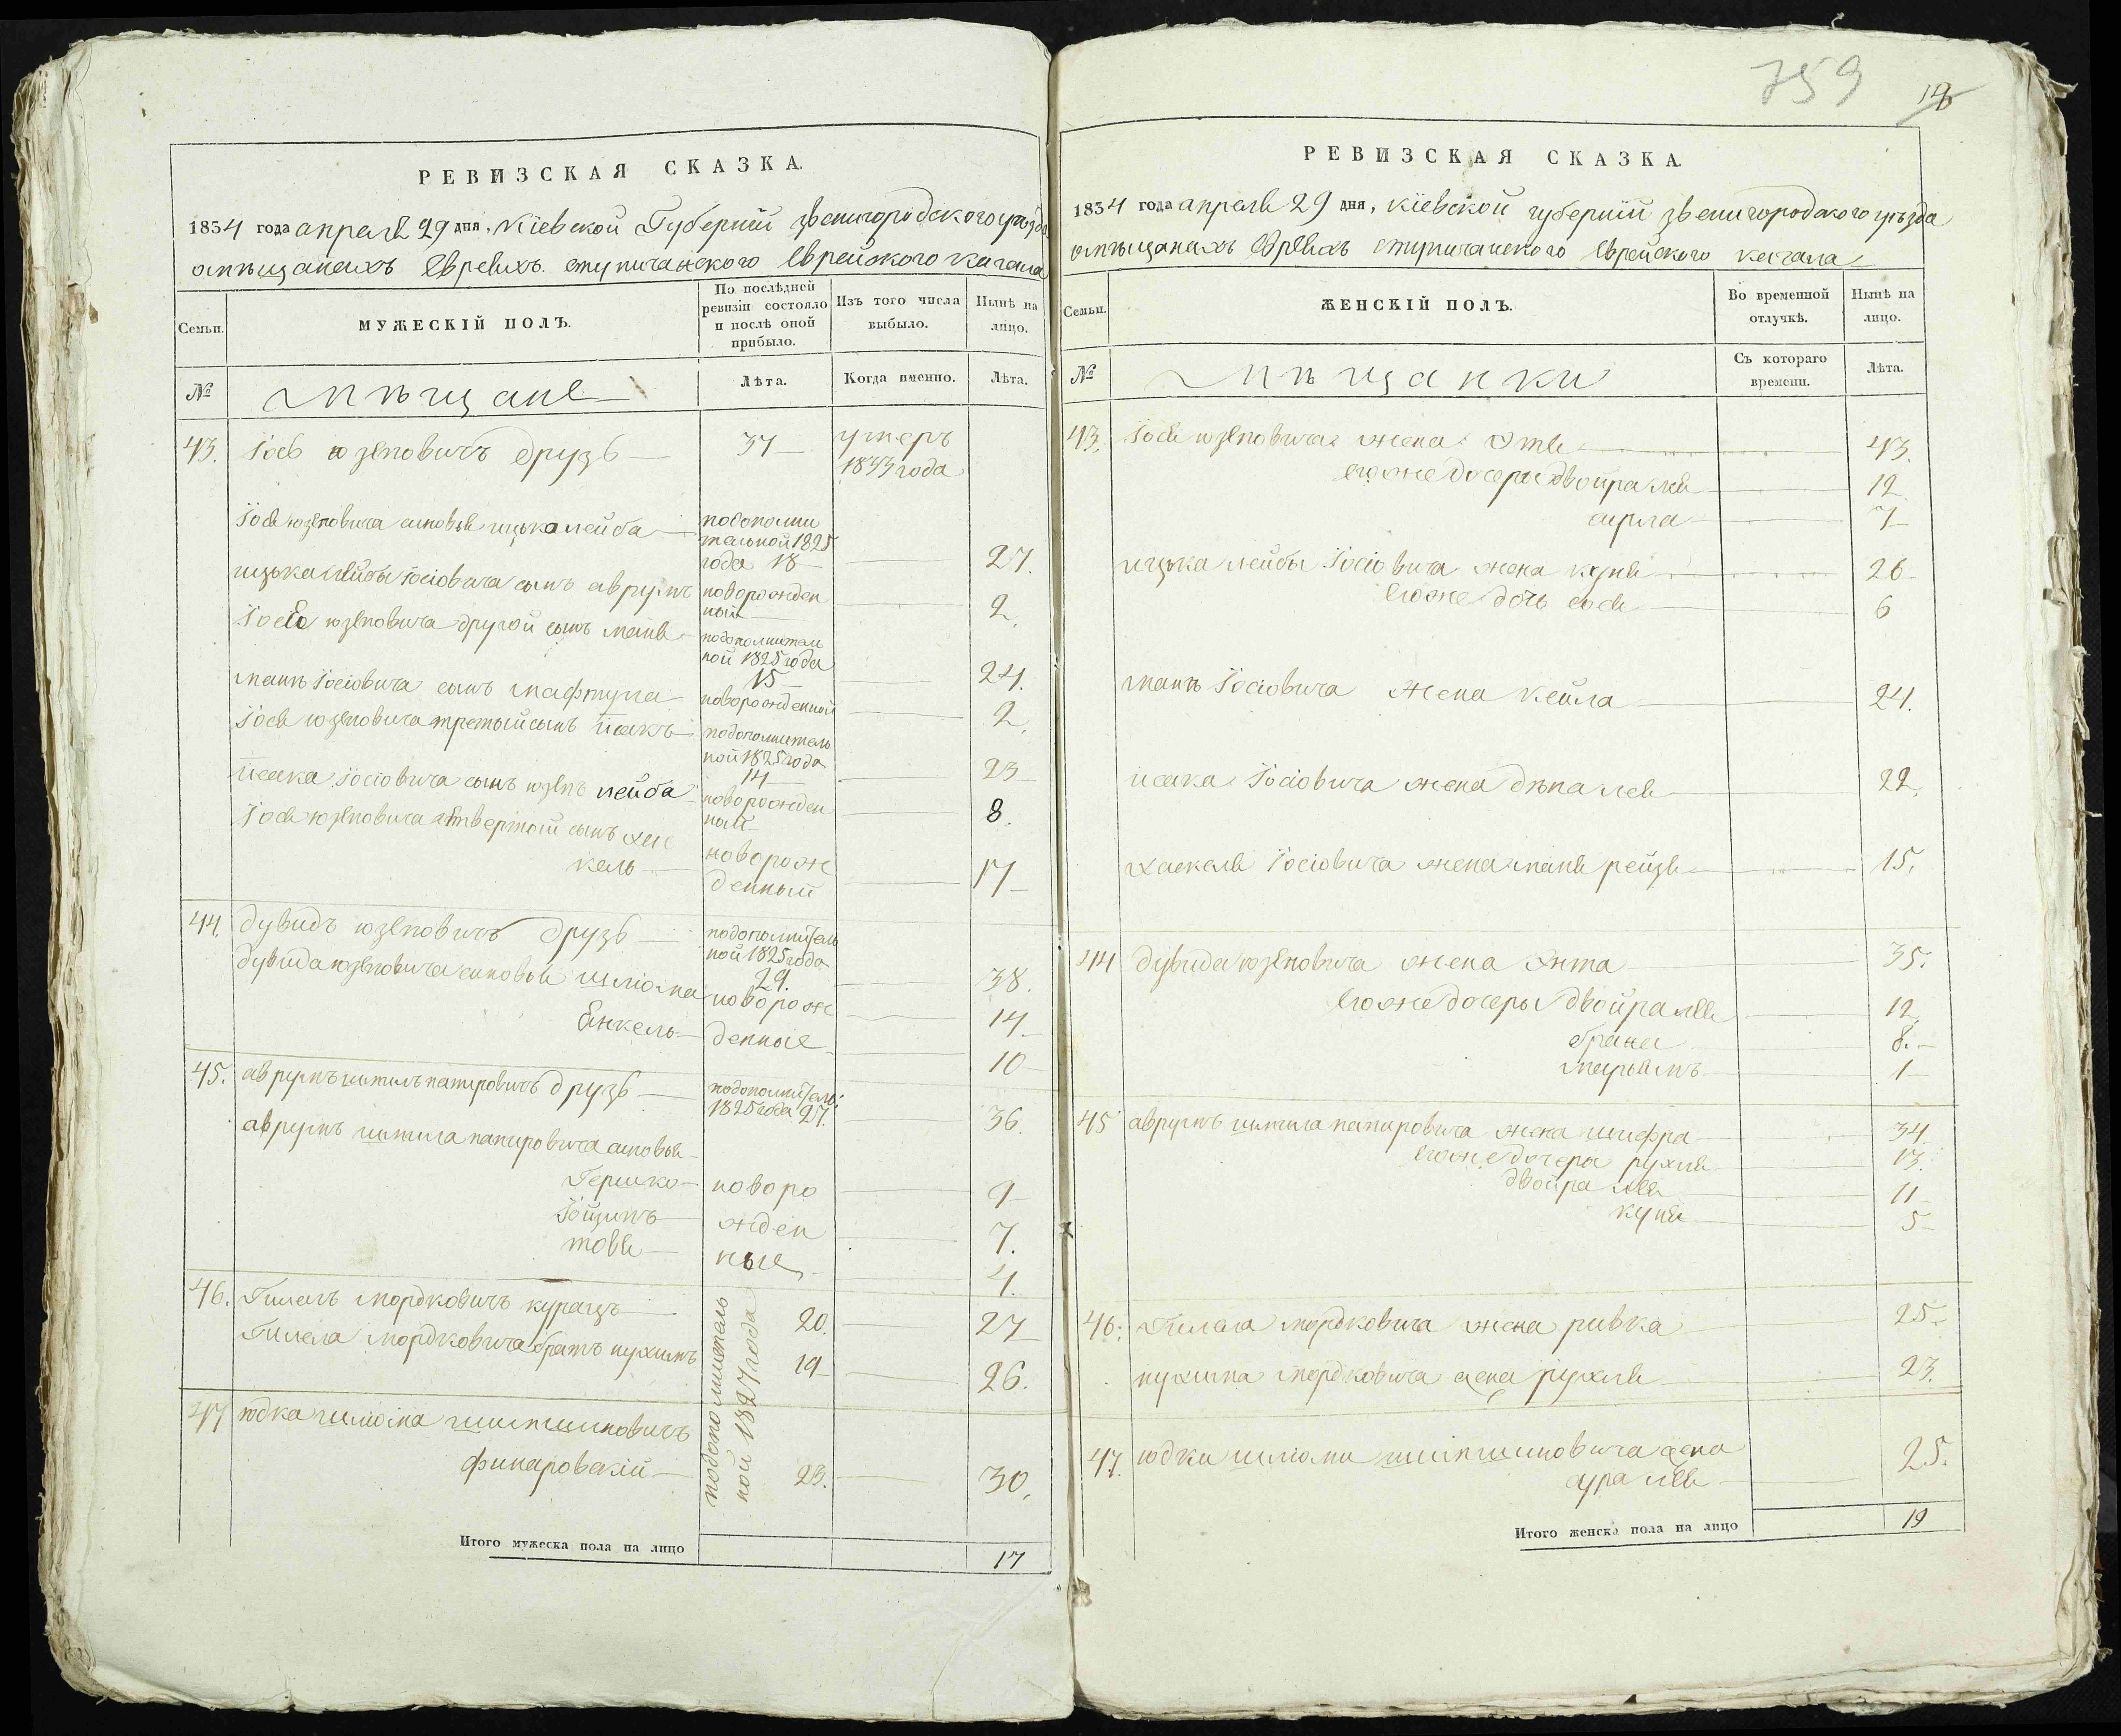 РЕВИЗСКАЯ СКАЗКА.
1834 года апреля 29 дня, Кіевской Губерніи Звенигородского уѣзда
омѣщанахъ Евреихъ ступичанского Еврейского кагала
Семьи.
МУЖЕСКІЙ ПОЛЪ.
По послѣдней ревизіи состояло и послѣ оной прибыло.
Изъ того числа выбыло.
Нынѣ на лицо.
№
Мѣщане
Лѣта.
Когда именно.
Лѣта.
43. Іось юзеповичъ друзь 37 умеръ
1833 года
Іося юзеповича сыновья ицько лейба подополни
тельной 1825
года 18 27.
ицька лейбы Іосіовича сынъ аврумъ новорожден
ный 2.
Іося юзеповича другой сынъ маня подополнител
ной 1825 года
15 24.
маня Іосіовича сынъ мафтула новорожденной 2.
Іося юзеповича третый сынъ исакъ подополнитель
ной 1825 года
14 23
исака Іосіовича сынъ юзепъ лейба новорожден
ный 8.
Іося юзеповича четвертой сынъ хас
кель новорож
денный 17
44. дувидъ юзеповичъ друзь подополнитель
ной 1825 года
29. 38.
дувида юзеповича сыновья шліома новорож 14.
Енкель денные 10
45. аврумъ шмилъ напировичъ друзь подополнитель:
1825 года 27. 36.
аврумъ шмила напировича сыновья
Гершко новоро 9
Іоципъ жден 7.
товя ные 4.
46. Гилель мордковичъ курацъ 20. 27
Гилела мордковича братъ нухимъ 19 26.
подополнитель
ной 1827 года
47 юдка шліома шимшиновичъ
финаровскій 23. 30.
Итого мужеска пола на лицо 17
759
14
РЕВИЗСКАЯ СКАЗКА.
1834 года апреля 29 дня, кіевской губерніи звенигородского уѣзда
омѣщанахъ Евреихъ ступичанского Еврейского кагала
Семьи.
ЖЕНСКІЙ ПОЛЪ.
Во временной отлучкѣ.
Нынѣ на лицо.
№
Мѣщанки
Съ котораго времени.
Лѣта.
43. Іося юзеповича жена Этя 43.
его же дочеры двойра лея 12
сирла 7
ицька лейбы Іосіовича жена куня 26.
его же дочь сося 6
маня Іосіовича жена кейла 24.
исака Іосіовича жена дѣна лея 22.
хаскеля Іосіовича жена маня рейзя 15.
44 дувида юзеповича жена Энта 35.
его же дочеры двойра лея 12.
брана 8.
марьямъ 1
45 аврумъ шмила напировича жена шифра 34
его же дочеры рухля 13.
двойра лея 11
куня 5
46. Гилела мордковича жена ривка 25.
нухима мордковича жена рухля 23.
47. юдки шліоми шимшиновича жена
сура лея 25.
Итого женска пола на лицо 19